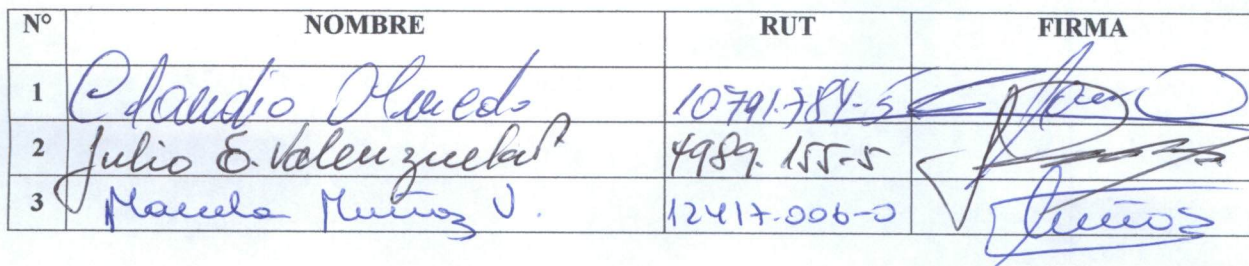 N° NOMBRE RUT FIRMA
1 Claudio Olmedo 10791.784-5
2 Julio E. Valenzuela 4989.155-5
3 Marcela Muñoz V. 12417.006-0 Muñoz